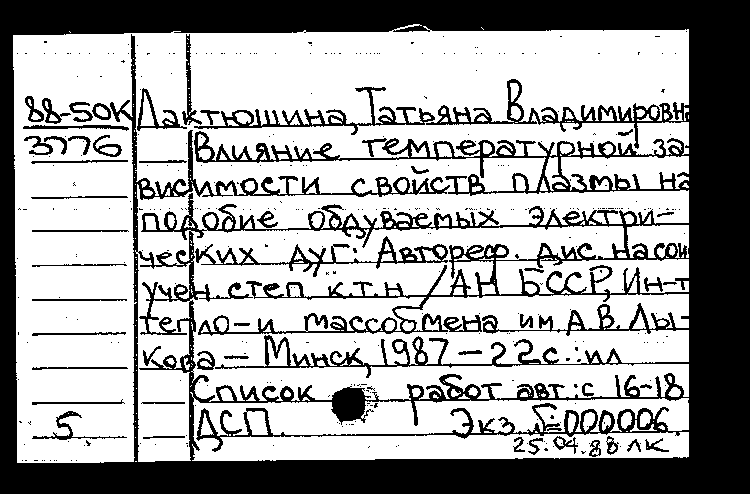 88-50К Лактюшина, Татьяна Владимировна
3776 Влияние температурной за-
висимости свойств плазмы на
подобие обдуваемых электри-
ческих дуг: Автореф. дис. на соис
учен. степ. к.т.н. / АН БССР, Ин-т
тепло-и массообмена им. А.В. Лы-
кова. - Минск, 1987 - 22 с.: ил
Список работ авт.: с 16-18
5. ДСП. Экз. №=000006.
25.04.88 ЛК